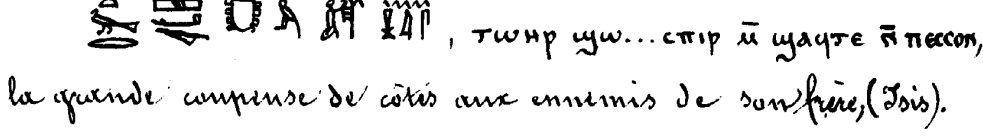 , ⲧⲱⲏⲣ ϣⲱ...ⲥⲡⲓⲣ ⲙ̄ ϣⲁϥⲧⲉ ⲙ̄ ⲡⲉⲥⲥⲟⲛ,
la grande coupeuse de côtés aux ennemis de son frère, (Isis).